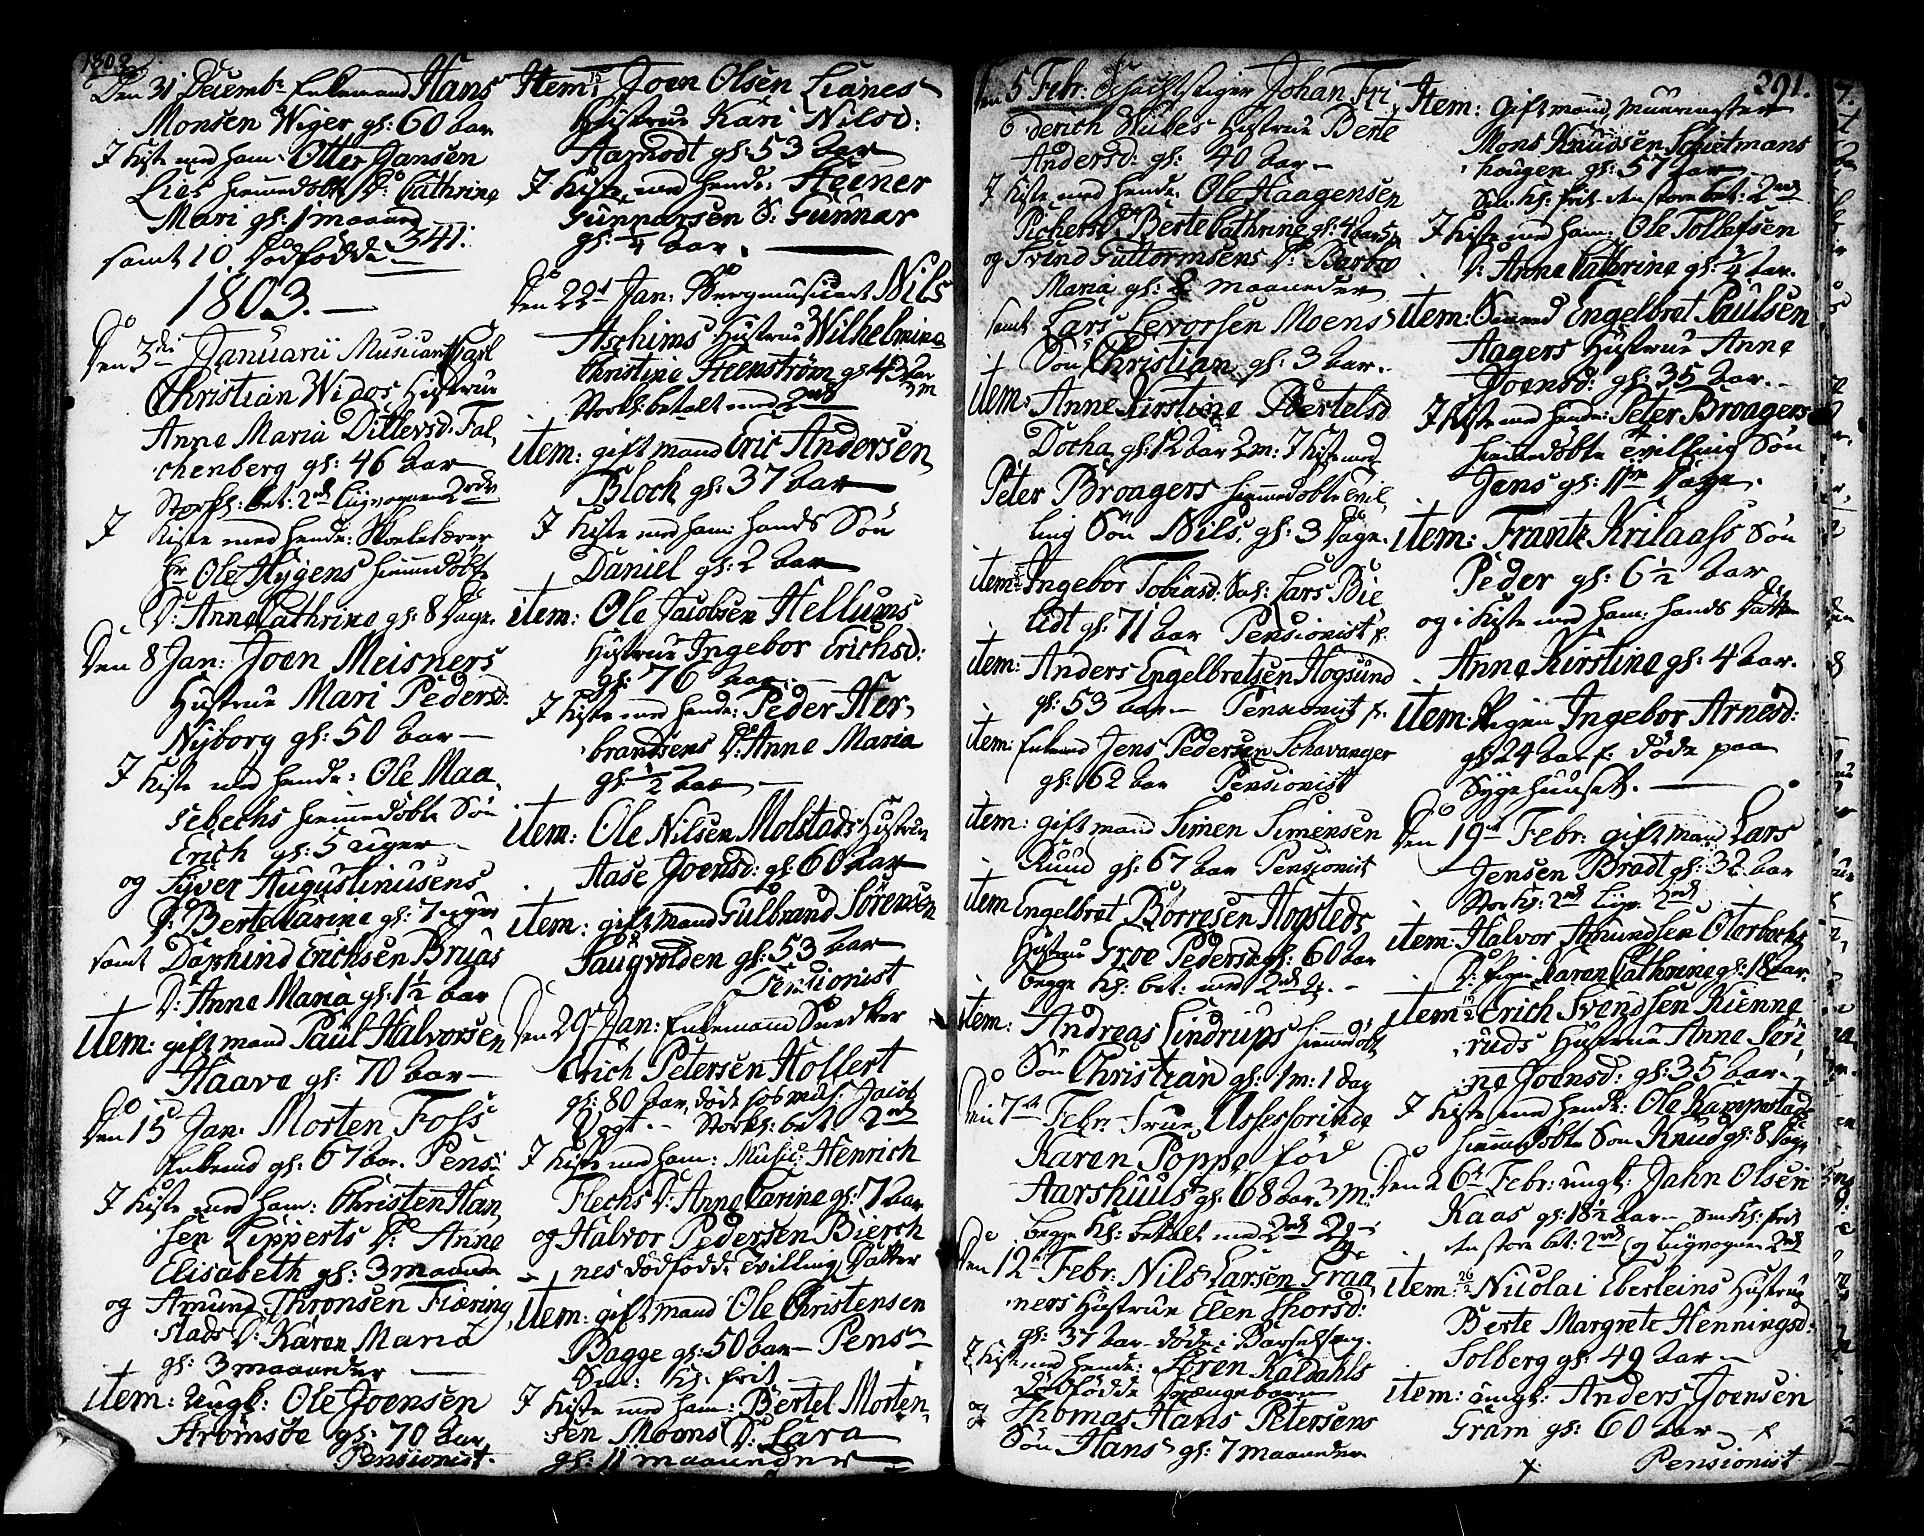 1802.
Den 31 Decembr Enkemand Hans
Monsen Wiger gl: 60 aar
I Kiste med ham: Otter Jansen
Lies hiemmedøbte D: Cathrine
Mari gl: 1 maaned
samt 10 dødfødde 341.
1803.
Den 3die Januarii Musicant Carl
Christian Widos Hustrue
Anne Maria Ditlevsd. Fal
chenberg gl: 46 aar
Storkl: bet: 2rd Liigvognen 2rdr
I Kiste med hende: Skoelelærer
Hr Ole Hygens hiemmedøbte
D: Anne Cathrine gl: 8 Dage.
Den 8 Jan: Joen Meisners
Hustrue Mari Pedersd:
Nyborg gl: 50 aar
I Kiste med hende: Ole Maa
sebechs hiemmedøbte Søn
Erich gl: 5 uger
og Syver Augustinusens
D: Berte Carine gl: 7 uger
samt Daphind Erichsen Bruas
D: Anne Maria gl: 1½ aar
item: gift mand Paul Halvorsen
Haave gl: 70 aar
Den 15 Jan: Morten Foss
Enkemd gl: 67 aar. Pens:
I Kiste med ham: Christen Han
sen Lipperts D: Anne
Elisabeth gl: 3 maaneder
og Amund Thronsen Fiæring
stads D: Karen Maria
gl: 3 maaneder
item: ungk: Ole Joensen
Strømsøe gl: 70 aar
Pensionist.
Item: Joen Olsen Lianes
Hustrue Kari Nilsd:
Aamodt gl: 53 aar
I Kiste med hende: Steener
Gunnarsen S: Gunnar
gl: ¼ aar.
Den 22d Jan: Bergmusicant Nils
Aschims Hustrue Wilhelmine
Christine Steenstrøm gl: 43 aar
3m
Storkl: betalt med 2rdr
item: gift mand Eric Andersen
Bloch gl: 37 aar
I Kiste med ham: hands Søn
Daniel gl: 2 aar
item: Ole Jacobsen Hellums
Hustrue Ingebor Erichsd:
gl: 76 aar.
I Kiste med hende: Peder Her
brandsens D: Anne Maria
gl: ½ aar
item: Ole Nilsen Molstads Hustrue
Aase Joensd: gl: 60 aar
item: gift mand Gulbrand Sørensen
Saugvolden gl: 53 aar
Pensionist
Den 29 Jan: Enkemann Snedker
Erich Petersen Hollert
gl: 80 aar, døde hos Jacob
Vogt. Storkl: bet: 2rdr
I Kiste med ham: Music: Henrich
Flechs D: Anne Carine gl: 7 aar
og Halvor Pedersen Bierch
nes dødfødde Tvilling Datter
item: gift mand Ole Christensen
Bagge gl: 50 aar Pensn
Sm: Kl: frit
I Kiste med ham: Bertel Morten
sen Moens D: Lara
gl: 11 maaneder
291.
Den 5 Febr: Schachtstiger Johan Fri
derich Hubes Hustrue Berte
Andersd: gl: 40 aar
I Kiste med hende: Ole Haagensen
Berte Cathrine gl: 4 aar
og Svend Guttormsens D: Barbra
Maria gl: 2 maaneder
samt Lars Levorsen Moens
Søn Christian gl: 3 aar.
item: Anne Kirstine Bertelsd
Docha gl: 12 aar 2m: I Kiste med
Peter Broagers hiemmedøbte Tvil
ling Søn Nils, gl: 3 Dage.
item: Ingebor Tobiasd: Sal: Lars Bie
lidt gl: 71 aar Pensionist
item: Anders Engelbretsen Hogsund
gl: 53 aar Pensionist
item: Enkemd Jens Pedersen Schavanger
gl: 62 aar Pensionist
item: gift mand Simen Simensen
Ruud gl: 67 aar Pensionist
item Engelbret Borresen Hogsteds
Hustrue Groe Pedersd gl: 60 aar
begge Kl: bet: med 2rdr
item: Andreas Lindrups hiemmedøbte
Søn Christian gl: 1m: 1 dag
Den 7de Febr. Frue Assessorinde
Karen Poppe fød
Aarshuus gl: 68 aar 3m.
begge Kl: betalt med 2rdr
Den 12te Febr: Nils Larsen Gran
ners Hustrue Elen Thorsd:
gl: 37 aar døde i Barselseng.
I Kiste med hende: Søren Kaldahls
dødfødde Drængebarn
og Thomas Hans Petersens
Søn Hans gl: 7 maaneder
Item: gift mand, Muurmester
Mons Knudsen Schietmans
hougen gl: 57 aar
Sm: Kl: frit den store bet: 2rdr
I Kiste med ham: Ole Tollefsen
D: Anne Cathrine gl: ¾ aar.
item: Engelbret Paulsen
Aagers Hustrue Anne
Joensd: gl: 35 aar.
I Kiste med hende: Peter Broagers
hiemmedøbte Tvilling Søn
Jens gl: 11 Dage.
item: Frantz Krilaass Søn
Peder gl: 6½ aar
og i Kiste med ham: hands Datter
Anne Kirstine gl: 4 aar.
item: Pigen Ingebor Arnesd:
gl: 24 aar døde paa
Sygehuuset.
Den 19de Febr: gift mand Lars
Jensen Bradt gl: 32 aar
Stor Kl: 2rdr Liigv: 2rdr
item: Halvor Amundsen Oterbechs
D: Pigen Karen Cathrine gl: 18 aar.
item: Erich Svendsen Kienne
ruds Hustrue Anne Sari
ne Joensd: gl: 35 aar.
I Kiste med hende: Ole Kampestads
hiemmedøbte Søn Knud gl: 8 Dage
Den 26de Febr: ungk: Jahn Olsen
Kaas gl: 18½ aar Sm: Kl: frit
den store bet: 2rdr og Liigvognen 2rdr
item: Nicolai Eberleins Hustrue
Berte Margrete Henningsd:
Solberg gl: 49 aar
item: ungk: Anders Joensen
Gram gl: 60 aar
Pensionist